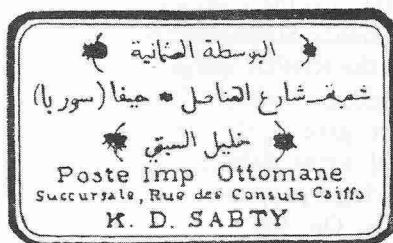 البوسطة العثمانية
شعبة شارع القناصل حيفا (سوريا)
خليل السبتي
Poste Imp Ottomane
Succursale, Rue des Consuls Caiffa
K. D. SABTY